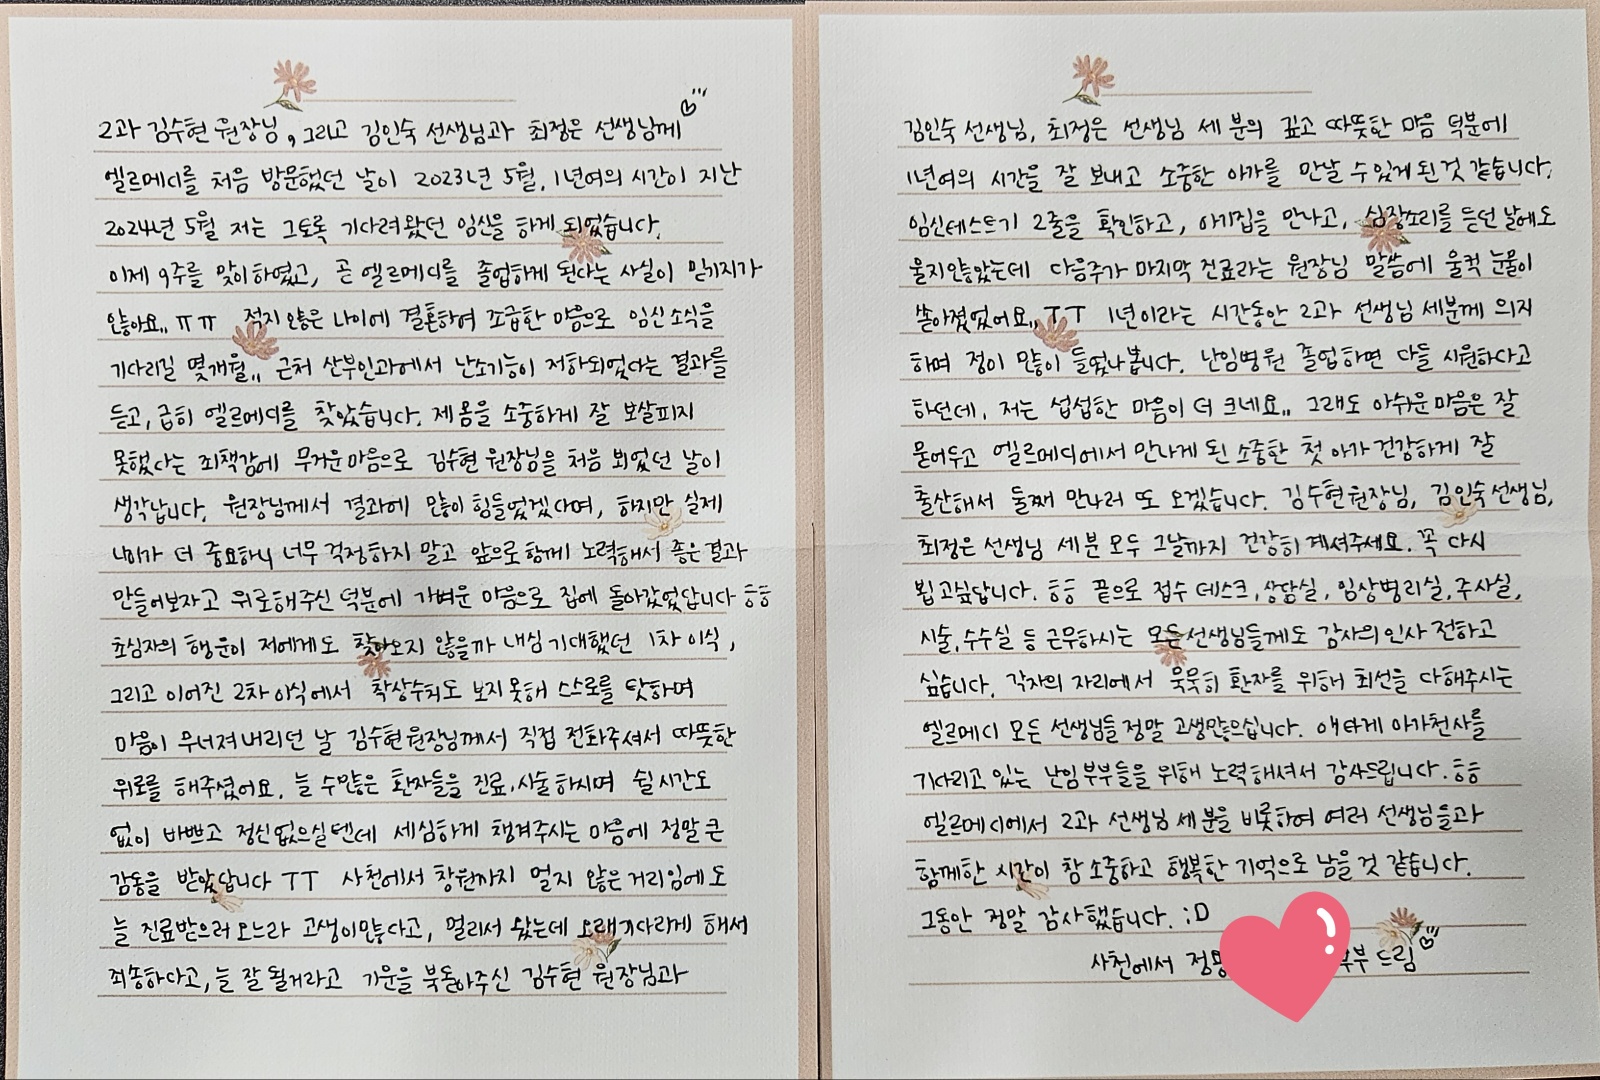 2과 김수현 원장님, 그리고 김인숙 선생님과 최정은 선생님께
엘르메디를 처음 방문했던 날이 2023년 5월, 1년여의 시간이 지난
2024년 5월 저는 그토록 기다려왔던 임신을 하게 되었습니다.
이제 9주를 맞이하였고, 곧 엘르메디를 졸업하게 된다는 사실이 믿기지가
않아요.. ㅠㅠ 적지않은 나이에 결혼하여 조급한 마음으로 임신 소식을
기다리길 몇개월.. 근처 산부인과에서 난소기능이 저하되었다는 결과를
듣고, 급히 엘르메디를 찾았습니다. 제 몸을 소중하게 잘 보살피지
못했다는 죄책감에 무거운 마음으로 김수현 원장님을 처음 뵈었던 날이
생각납니다. 원장님께서 결과에 많이 힘들었겠다며, 하지만 실제
나이가 더 중요하니 너무 걱정하지 말고 앞으로 함께 노력해서 좋은 결과
만들어보자고 위로해주신 덕분에 가벼운 마음으로 집에 돌아갔었답니다 ㅎㅎ
초심자의 행운이 저에게도 찾아오지 않을까 내심 기대했던 1차 이식,
그리고 이어진 2차 이식에서 착상수치도 보지 못해 스스로를 탓하며
마음이 무너져내리던 날 김수현 원장님께서 직접 전화주셔서 따뜻한
위로를 해주셨어요. 늘 수많은 환자들을 진료,시술하시며 쉴 시간도
없이 바쁘고 정신없으실텐데 세심하게 챙겨주시는 마음에 정말 큰
감동을 받았답니다 ㅜㅜ 사천에서 창원까지 멀지 않은 거리임에도
늘 진료받으러 오느라 고생이많다고, 멀리서 왔는데 오래기다리게 해서
죄송하다고, 늘 잘 될거라고 기운을 북돋아주신 김수현 원장님과
김인숙 선생님, 최정은 선생님 세 분의 깊고 따뜻한 마음 덕분에
1년여의 시간을 잘 보내고 소중한 아가를 만날 수 있게 된 것 같습니다.
임신테스트기 2줄을 확인하고, 아기집을 만나고, 심장소리를 듣던 날에도
울지않았는데 다음주가 마지막 진료라는 원장님 말씀에 울컥 눈물이
쏟아졌었어요.. ㅜㅜ 1년이라는 시간동안 2과 선생님 세분께 의지
하며 정이 많이 들었나봅니다. 난임병원 졸업하면 다들 시원하다고
하던데, 저는 섭섭한 마음이 더 크네요.. 그래도 아쉬운 마음은 잘
묻어두고 엘르메디에서 만나게 된 소중한 첫 아가 건강하게 잘
출산해서 둘째 만나러 또 오겠습니다. 김수현 원장님, 김인숙 선생님,
최정은 선생님 세 분 모두 그날까지 건강히 계셔주세요. 꼭 다시
뵙고싶답니다. ㅎㅎ 끝으로 접수 데스크, 상담실, 임상병리실, 주사실,
시술,수수실 등 근무하시는 모든 선생님들께도 감사의 인사 전하고
싶습니다. 각자의 자리에서 묵묵히 환자를 위해 최선을 다해주시는
엘르메디 모든 선생님들 정말 고생많으십니다. 애타게 아가천사를
기다리고 있는 난임부부들을 위해 노력해셔서 감사드립니다. ㅎㅎ
엘르메디에서 2과 선생님 세 분을 비롯하여 여러 선생님들과
함께한 시간이 참 소중하고 행복한 기억으로 남을 것 같습니다.
그동안 정말 감사했습니다. :D
사천에서 부부 드림